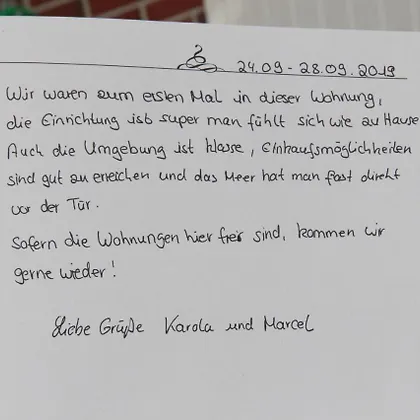 24.09 - 28.09.2019
Wir waren zum ersten Mal in dieser Wohnung,
die Einrichtung ist super man fühlt sich wie zu Hause
Auch die Umgebung ist klasse, Einkaufsmöglichkeiten
sind gut zu erreichen und das Meer hat man fast direkt
vor der Tür.
Sofern die Wohnungen hier frei sind, kommen wir
gerne wieder!
Liebe Grüße Karola und Marcel